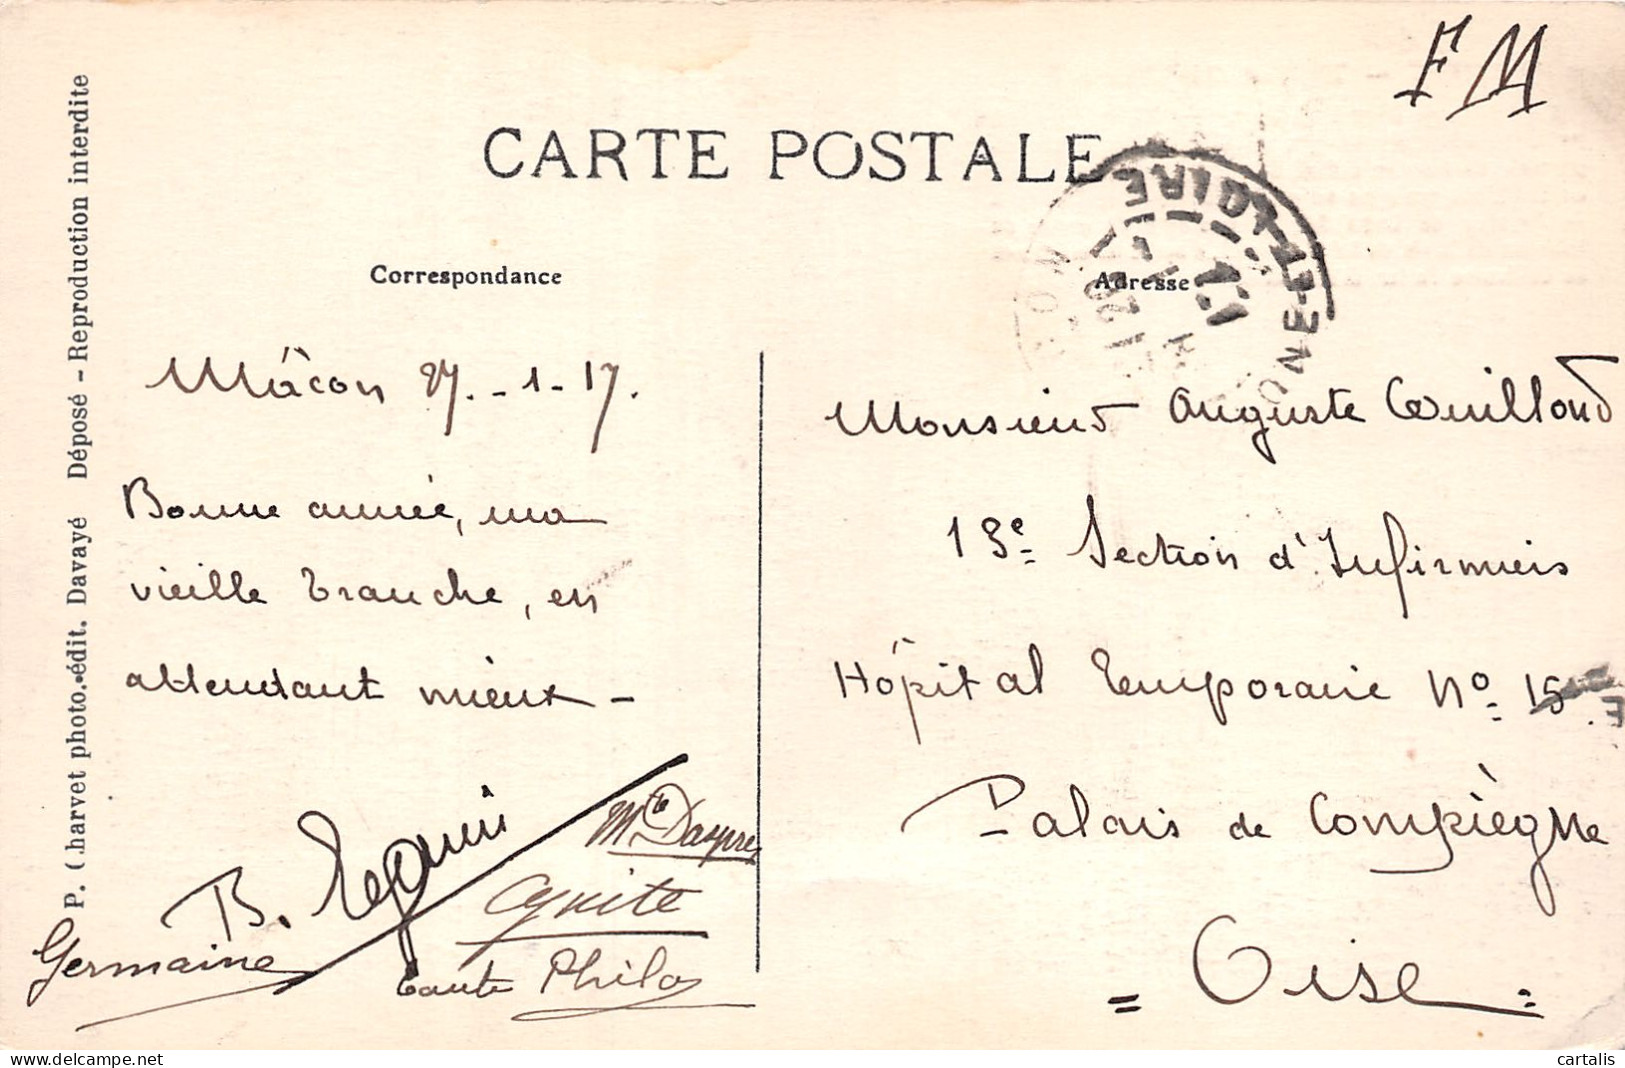 F M
CARTE POSTALE
Correspondance
Adresse
SAONE-ET-LOIRE
P. Charvet photo.-édit. Davayé Déposé - Reproduction interdite
Mâcon 27.-1-17.
Bonne année, ma
vieille branche, en
attendant mieux -
B.
Mlle
Germaine
tante Philo
Monsieur Auguste Couilloud
13e Section d'Infirmiers
Hôpital Temporaire No 15
Palais de Compiègne
= Oise =
delcampe.net
cartalis